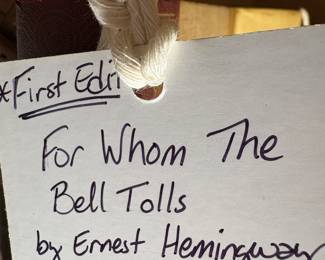 *First Editi
For Whom The
Bell Tolls
by Ernest Hemingway